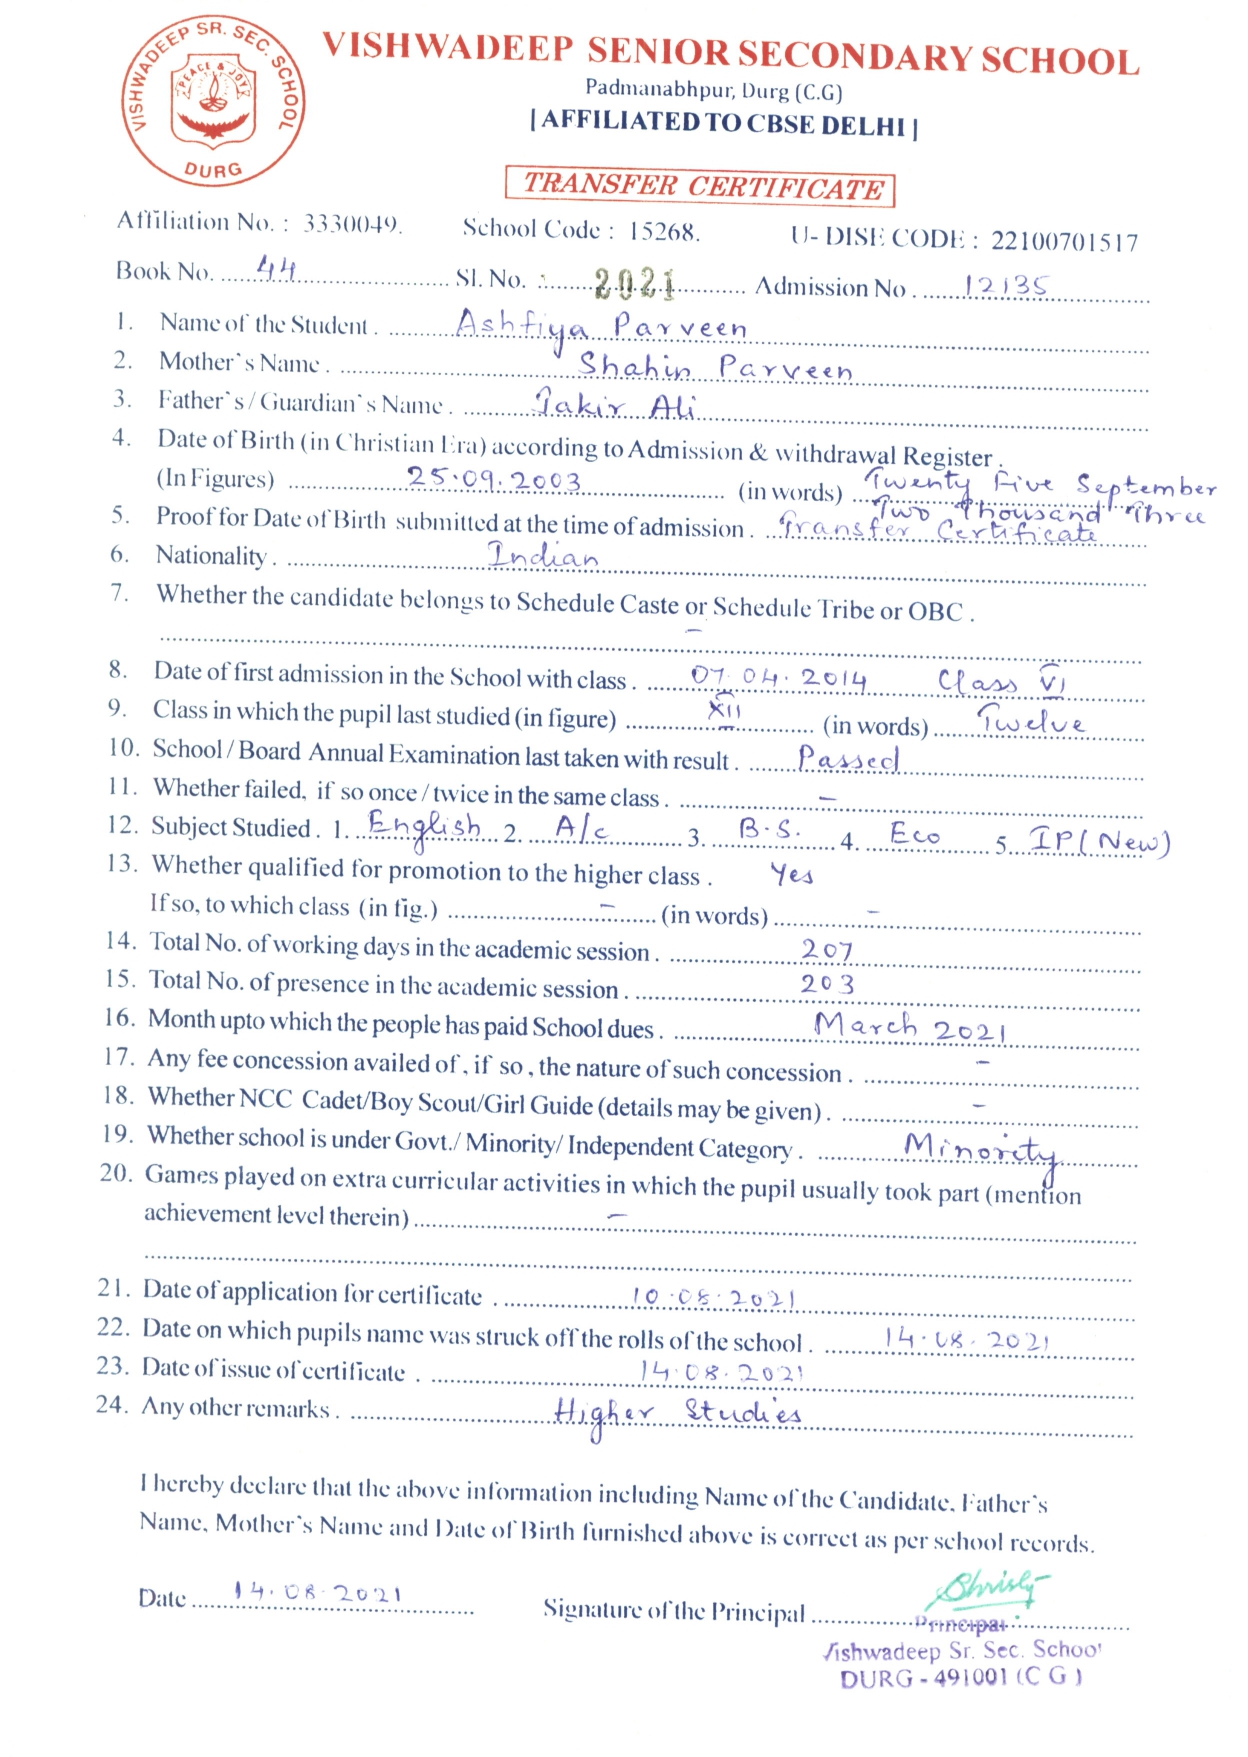 VISHWADEEP SR. SEC. SCHOOL
PEACE & JOY
DURG
VISHWADEEP SENIOR SECONDARY SCHOOL
Padmanabhpur, Durg (C.G)
| AFFILIATED TO CBSE DELHI |
TRANSFER CERTIFICATE
Affiliation No. : 3330049. School Code : 15268. U- DISE CODE : 22100701517
Book No. 44 Sl. No. : 2021 Admission No. 12135
1. Name of the Student. Ashfiya Parveen
2. Mother`s Name. Shahin Parveen
3. Father`s / Guardian`s Name. Jakir Ali
4. Date of Birth (in Christian Era) according to Admission & withdrawal Register.
(In Figures) 25.09.2003 (in words) Twenty Five September
Two Thousand Three
5. Proof for Date of Birth submitted at the time of admission. Transfer Certificate
6. Nationality. Indian
7. Whether the candidate belongs to Schedule Caste or Schedule Tribe or OBC.
–
8. Date of first admission in the School with class. 07.04.2014 Class VI
9. Class in which the pupil last studied (in figure) XII (in words) Twelve
10. School / Board Annual Examination last taken with result. Passed
11. Whether failed, if so once / twice in the same class. –
12. Subject Studied. 1. English 2. A/c 3. B.S. 4. Eco 5. IP (New)
13. Whether qualified for promotion to the higher class. Yes
If so, to which class (in fig.) – (in words) –
14. Total No. of working days in the academic session. 207
15. Total No. of presence in the academic session. 203
16. Month upto which the people has paid School dues. March 2021
17. Any fee concession availed of, if so, the nature of such concession. –
18. Whether NCC Cadet/Boy Scout/Girl Guide (details may be given). –
19. Whether school is under Govt./ Minority/ Independent Category. Minority
20. Games played on extra curricular activities in which the pupil usually took part (mention
achievement level therein) –
21. Date of application for certificate. 10.08.2021
22. Date on which pupils name was struck off the rolls of the school. 14.08.2021
23. Date of issue of certificate. 14.08.2021
24. Any other remarks. Higher Studies
I hereby declare that the above information including Name of the Candidate, Father`s
Name, Mother`s Name and Date of Birth furnished above is correct as per school records.
Date 14.08.2021 Signature of the Principal
Principal
Vishwadeep Sr. Sec. School
DURG - 491001 (C G)